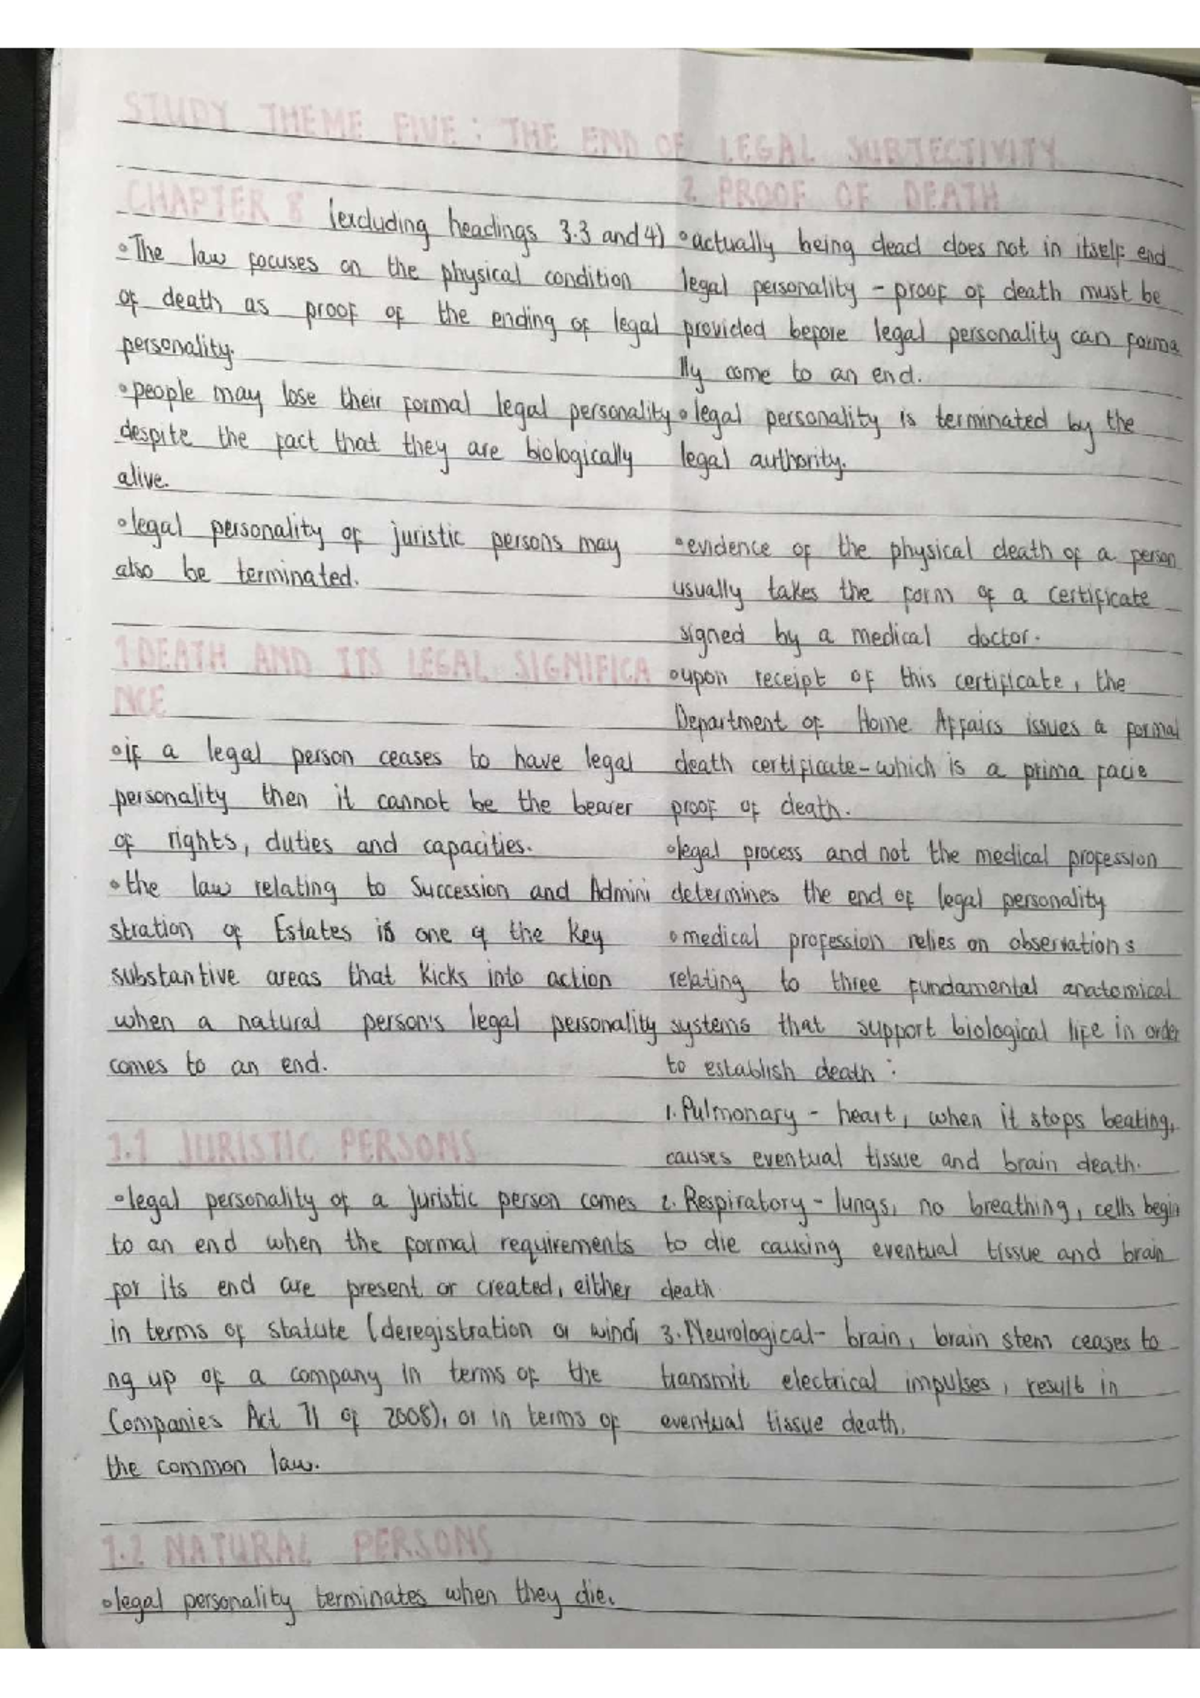 STUDY THEME FIVE : THE END OF LEGAL SUBJECTIVITY
CHAPTER 8 (excluding headings 3.3 and 4)
•The law focuses on the physical condition
of death as proof of the ending of legal
personality.
•people may lose their formal legal personality
despite the fact that they are biologically
alive.
•legal personality of juristic persons may
also be terminated.
1 DEATH AND ITS LEGAL SIGNIFICA
NCE
•if a legal person ceases to have legal
personality then it cannot be the bearer
of rights, duties and capacities.
•the law relating to Succession and Admini
stration of Estates is one of the key
substantive areas that kicks into action
when a natural person's legal personality
comes to an end.
1.1 JURISTIC PERSONS
•legal personality of a juristic person comes
to an end when the formal requirements
for its end are present or created, either
in terms of statute (deregistration or windi
ng up of a company in terms of the
Companies Act 71 of 2008), or in terms of
the common law.
1.2 NATURAL PERSONS
•legal personality terminates when they die.
2. PROOF OF DEATH
•actually being dead does not in itself end
legal personality - proof of death must be
provided before legal personality can forma
lly come to an end.
•legal personality is terminated by the
legal authority.
•evidence of the physical death of a person
usually takes the form of a certificate
signed by a medical doctor.
•upon receipt of this certificate, the
Department of Home Affairs issues a formal
death certificate - which is a prima facie
proof of death.
•legal process and not the medical profession
determines the end of legal personality
•medical profession relies on observations
relating to three fundamental anatomical
systems that support biological life in order
to establish death :
1. Pulmonary - heart, when it stops beating,
causes eventual tissue and brain death.
2. Respiratory - lungs, no breathing, cells begin
to die causing eventual tissue and brain
death
3. Neurological - brain, brain stem ceases to
transmit electrical impulses, result in
eventual tissue death.